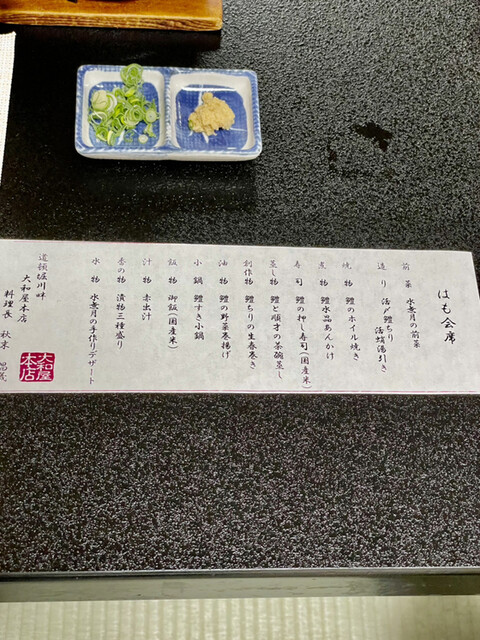 はも会席
前菜 水無月の前菜
造り 活〆鱧ちり
活蛸湯引き
焼物 鱧のホイル焼き
煮物 鱧水晶あんかけ
寿司 鱧の押し寿司(国産米)
蒸し物 鱧と順才の茶碗蒸し
創作物 鱧ちりの生春巻き
油物 鱧の野菜巻揚げ
小鍋 鱧すき小鍋
飯物 御飯(国産米)
汁物 赤出汁
香の物 漬物三種盛り
水物 水無月の手作りデザート
道頓堀川畔
大和屋本店
料理長 秋末
大和屋
本店